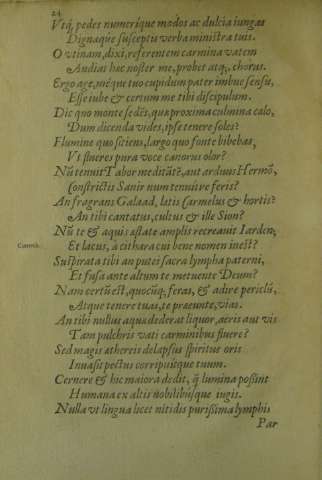 24
Vtq́; pedes numerique modos ac dulcia iungas
Dignaque susceptu verba ministra tuis.
O vtinam, dixi, referentem carmina vatem
Audiat hac noster me, probet atq;, chorus.
Ergo age, méque tuo cupidum pater imbue sensu,
Esse iube & certum me tibi discipulum.
Dic quo monte sedēs, qua proxima culmina calo,
Dum dicenda vides, ipse tenere soles?
Flumine quo sitiens, largo quo fonte bibebas,
Vt flueres pura voce canorus olor?
Nū tenuit Tabor meditātē?, aut arduus Hermō,
Constrictis Sanir num tenuitve feris?
An fragrans Galaad, latis Carmelus & hortis?
An tibi cantatus, cultus & ille Sion?
Nū te & aquis astate amplis recreauit Iarden,
Et lacus, a cithara cui bene nomen inest?
Suspirata tibi an putei sacra lympha paterni,
Et fusa ante altum te metuente Deum?
Nam certū est, quocūq; feras, & adire periclū,
Atque tenere tuas, te praeunte, vias.
An tibi nullus aqua dederat liquor, aeris aut vis
Tam pulchris vati carminibus fluere?
Sed magis athereis delapsus spiritus oris
Inuasit pectus corripuitque tuum.
Cernere & hic maiora dedit, q̃ lumina possint
Humana ex altis nobilibusque iugis.
Nulla vt lingua licet nitidis purissima lymphis
Par